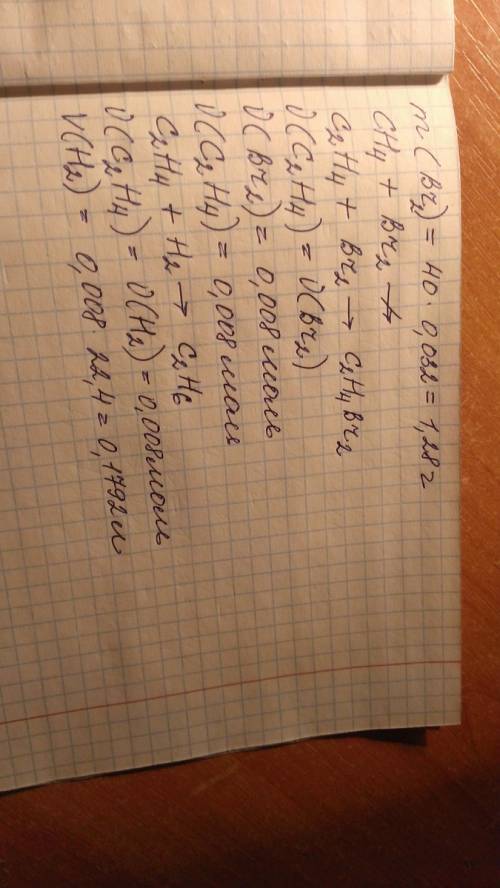 m(Br₂) = 40 · 0,032 = 1,28 г
CH₄ + Br₂ ↛
C₂H₄ + Br₂ → C₂H₄Br₂
ν(C₂H₄) = ν(Br₂)
ν(Br₂) = 0,008 моль
ν(C₂H₄) = 0,008 моль
C₂H₄ + H₂ → C₂H₆
ν(C₂H₄) = ν(H₂) = 0,008 моль
V(H₂) = 0,008 22,4 = 0,1792 л